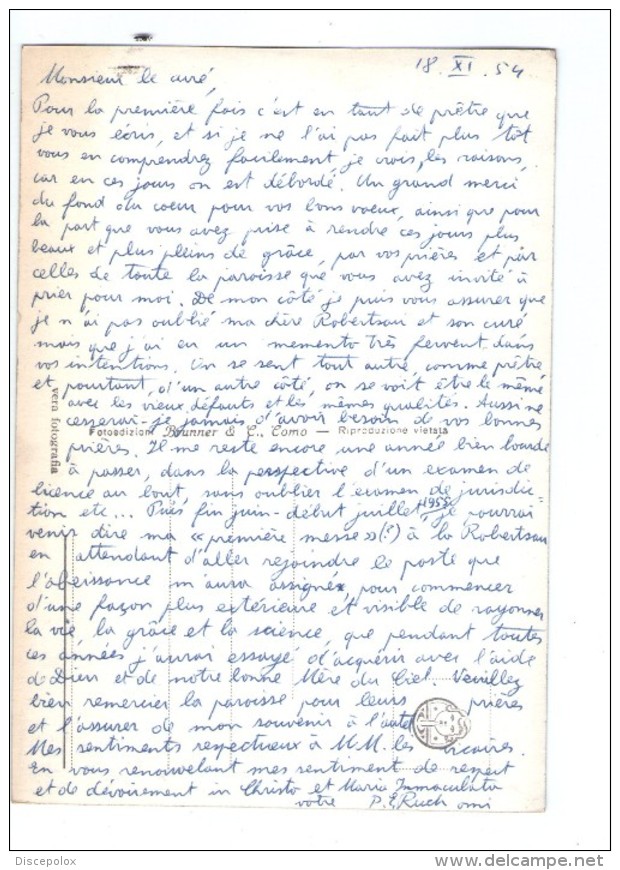 18. XI. 54
Monsieur le curé,
Pour la première fois c'est en tant de prêtre que
je vous écris, et si je ne l'ai pas fait plus tôt
vous en comprendrez facilement je crois, les raisons,
car en ces jours on est débordé. Un grand merci
du fond du coeur pour vos bons voeux, ainsi que pour
la part que vous avez prise à rendre ces jours plus
beaux et plus pleins de grâce, par vos prières et par
celles de toute la paroisse que vous avez invité à
prier pour moi. De mon côté je puis vous assurer que
je n'ai pas oublié ma chère Robertsau et son curé
mais que j'ai eu un memento très fervent dans
vos intentions. On se sent tout autre, comme prêtre
et pourtant, d'un autre côté, on se voit être le même
avec les vieux défauts et les mêmes qualités. Aussi ne
cesserai-je jamais d'avoir besoin de vos bonnes
vera fotografia
Fotoedizioni Brunner & C., Como — Riproduzione vietata
prières. Il me reste encore une année bien lourde
à passer, dans la perspective d'un examen de
licence au bout, sans oublier l'examen de jurisdic-
tion etc... Puis fin juin-début juillet 1955 je pourrai
venir dire ma « première messe » (?) à la Robertsau
en attendant d'aller rejoindre le poste que
l'obeissance m'aura assigné, pour commencer
d'une façon plus extérieure et visible de rayonner
la vie, la grâce et la science, que pendant toutes
ces années j'aurai essayé d'acquérir avec l'aide
de Dieu et de notre bonne Mère du Ciel. Veuillez
bien remercier la paroisse pour leurs prières
et l'assurer de mon souvenir à l'autel
Mes sentiments respectueux à M.M. les vicaires.
En vous renouvelant mes sentiment de respect
et de dévouement in Christo et Maria Immaculata
votre P. E. Ruch omi
Discepolox
delcampe.net